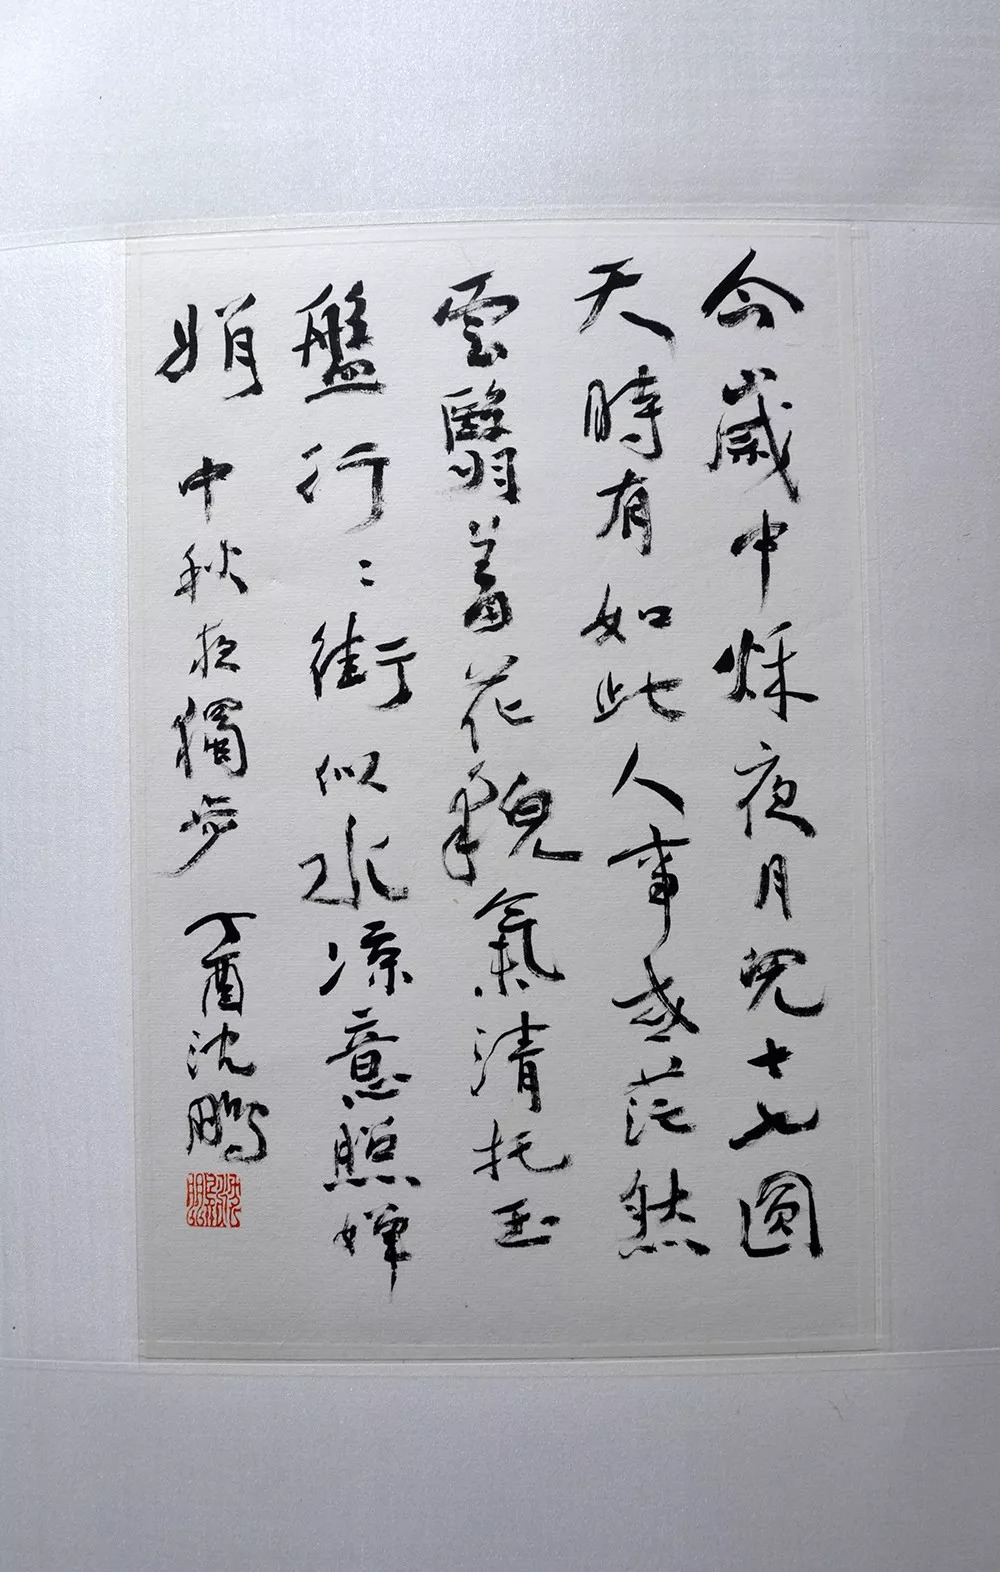 今歲中秌夜月兒十七圓
天時有如此人事或茫然
雲翳羞花貌氣清托玉
盤行〻街似水涼意照嬋
娟 中秋夜獨步 丁酉沈鵬